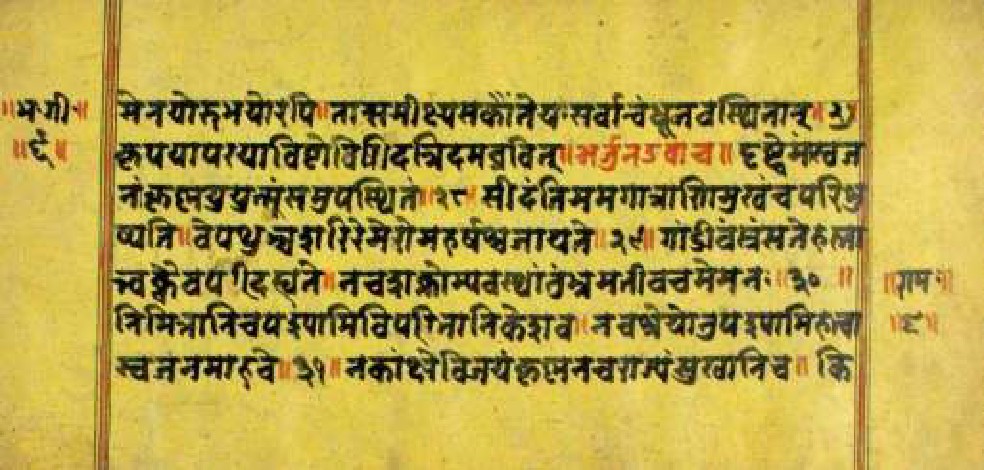 ॥भ.गी॥
॥६॥
सेनयोरुभयोरपि॥तान्समीक्ष्यसकौंतेयःसर्वान्बंधूनवस्थितान्॥२७
कृपयापरयाविष्टोविषीदन्निदमब्रवित्॥अर्जुनउवाच॥दृष्ट्वेमंस्वज
नंकृष्णयुयुत्सुंसमुपस्थितं॥२८सीदंतिममगात्राणिमुखंचपरिशु
ष्यति॥वेपथुश्चशरिरेमेरोमहर्षश्चजायते॥२९॥गांडीवंस्रंसतेहस्ता
त्त्वक्चैवपरिदह्यते॥नचशक्नोम्यवस्थांतुंभ्रमतीवचमेमनः॥३०॥
निमित्तानिचपश्यामिविपरितानिकेशव॥नचश्रेयोनुपश्यामिहत्वा
स्वजनमाहवे॥३१॥नकांक्षेविजयंकृष्णनचराज्यंसुखानिच॥किं
॥राम॥
॥६॥